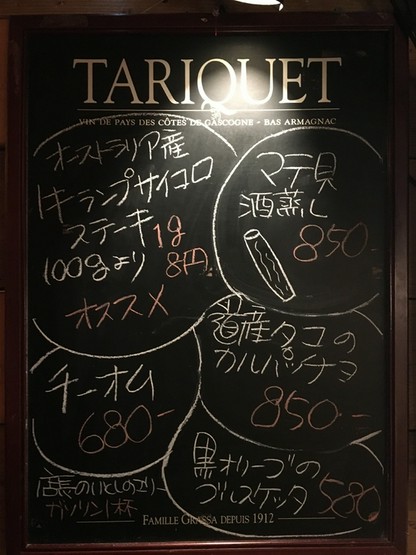 TARIQUET
VIN DE PAYS DES CÔTES DE GASCOGNE - BAS ARMAGNAC
オーストラリア産
牛ランプサイコロ
ステーキ 1g
100gより 8円
オススメ
マテ貝
酒蒸し
850-
道産タコの
カルパッチョ
850-
チーオム
680-
黒オリーブの
ブルスケッタ 580
店長の
ガソリン1杯
FAMILLE GRASSA DEPUIS 1912